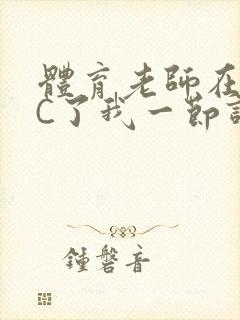 體育老師在
C了我一節
鍾磬音